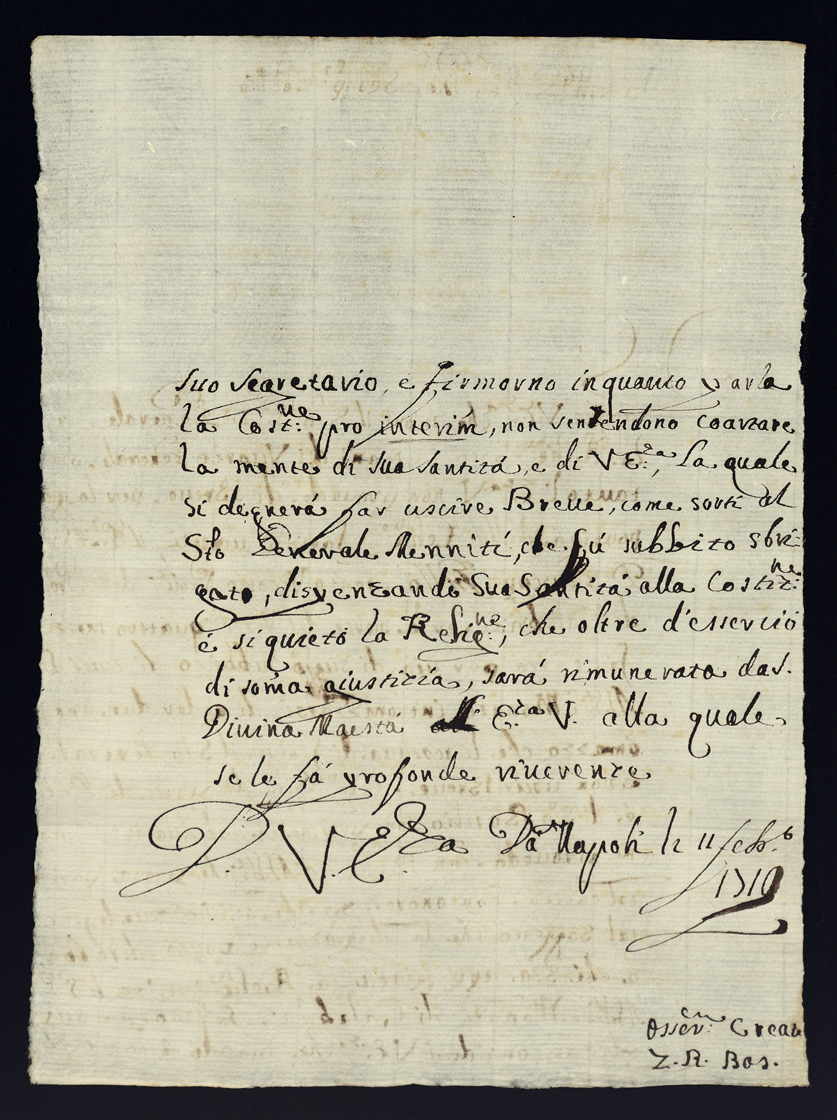 suo segretario, e firmorno inquanto parla
la Cost:ne pro interim, non sentendono coartare
la mente di sua santitá, e di V E:za, la quale
si degnerá far uscire Breue, come sortì al
Sto Generale Menniti, che fú subbito sbri-
gato, dispenzando Sua Santitá alla Costit:ne
é si quietó la Relig:ne, che oltre d'esserció
di soma giustitia, sará rimunerata da S.
Divina Maestá E:za V. alla quale
se le fá profonde riuerenze
D. V. E:za Da Napoli li 11 feb:o
1710
Osserv:m Creat
Z. R. Bas.